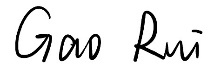 Gao Rui